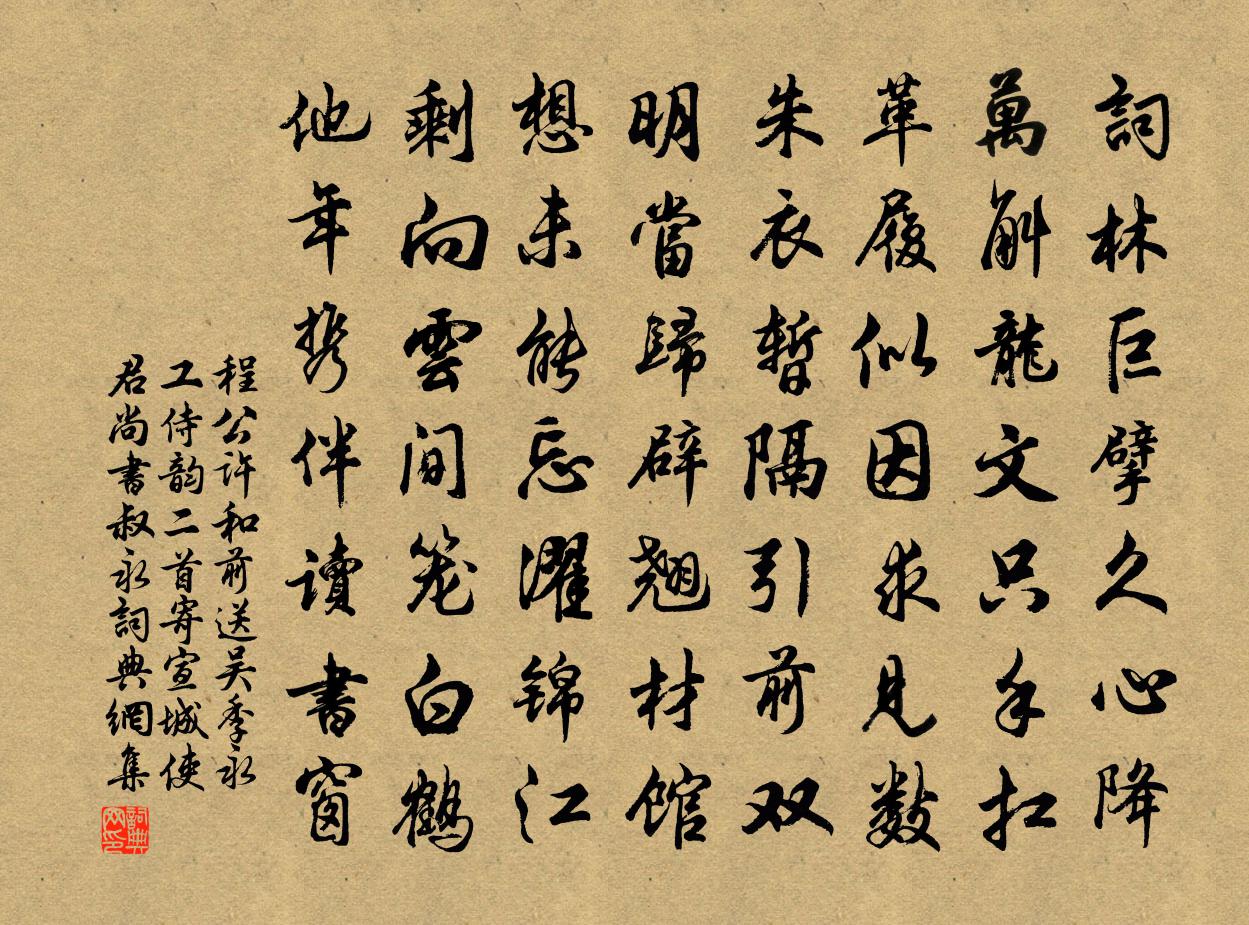 詞林巨擘久心降
萬斛龍文只手扛
革履似因求見數
朱衣暫隔引前双
明當歸辟翹材館
想未能忘濯錦江
剩向雲間笼白鶴
他年携伴讀書窗
程公许和前送吴季永
工侍韵二首寄宣城使
君尚書叔永詞典網集
詞典网印